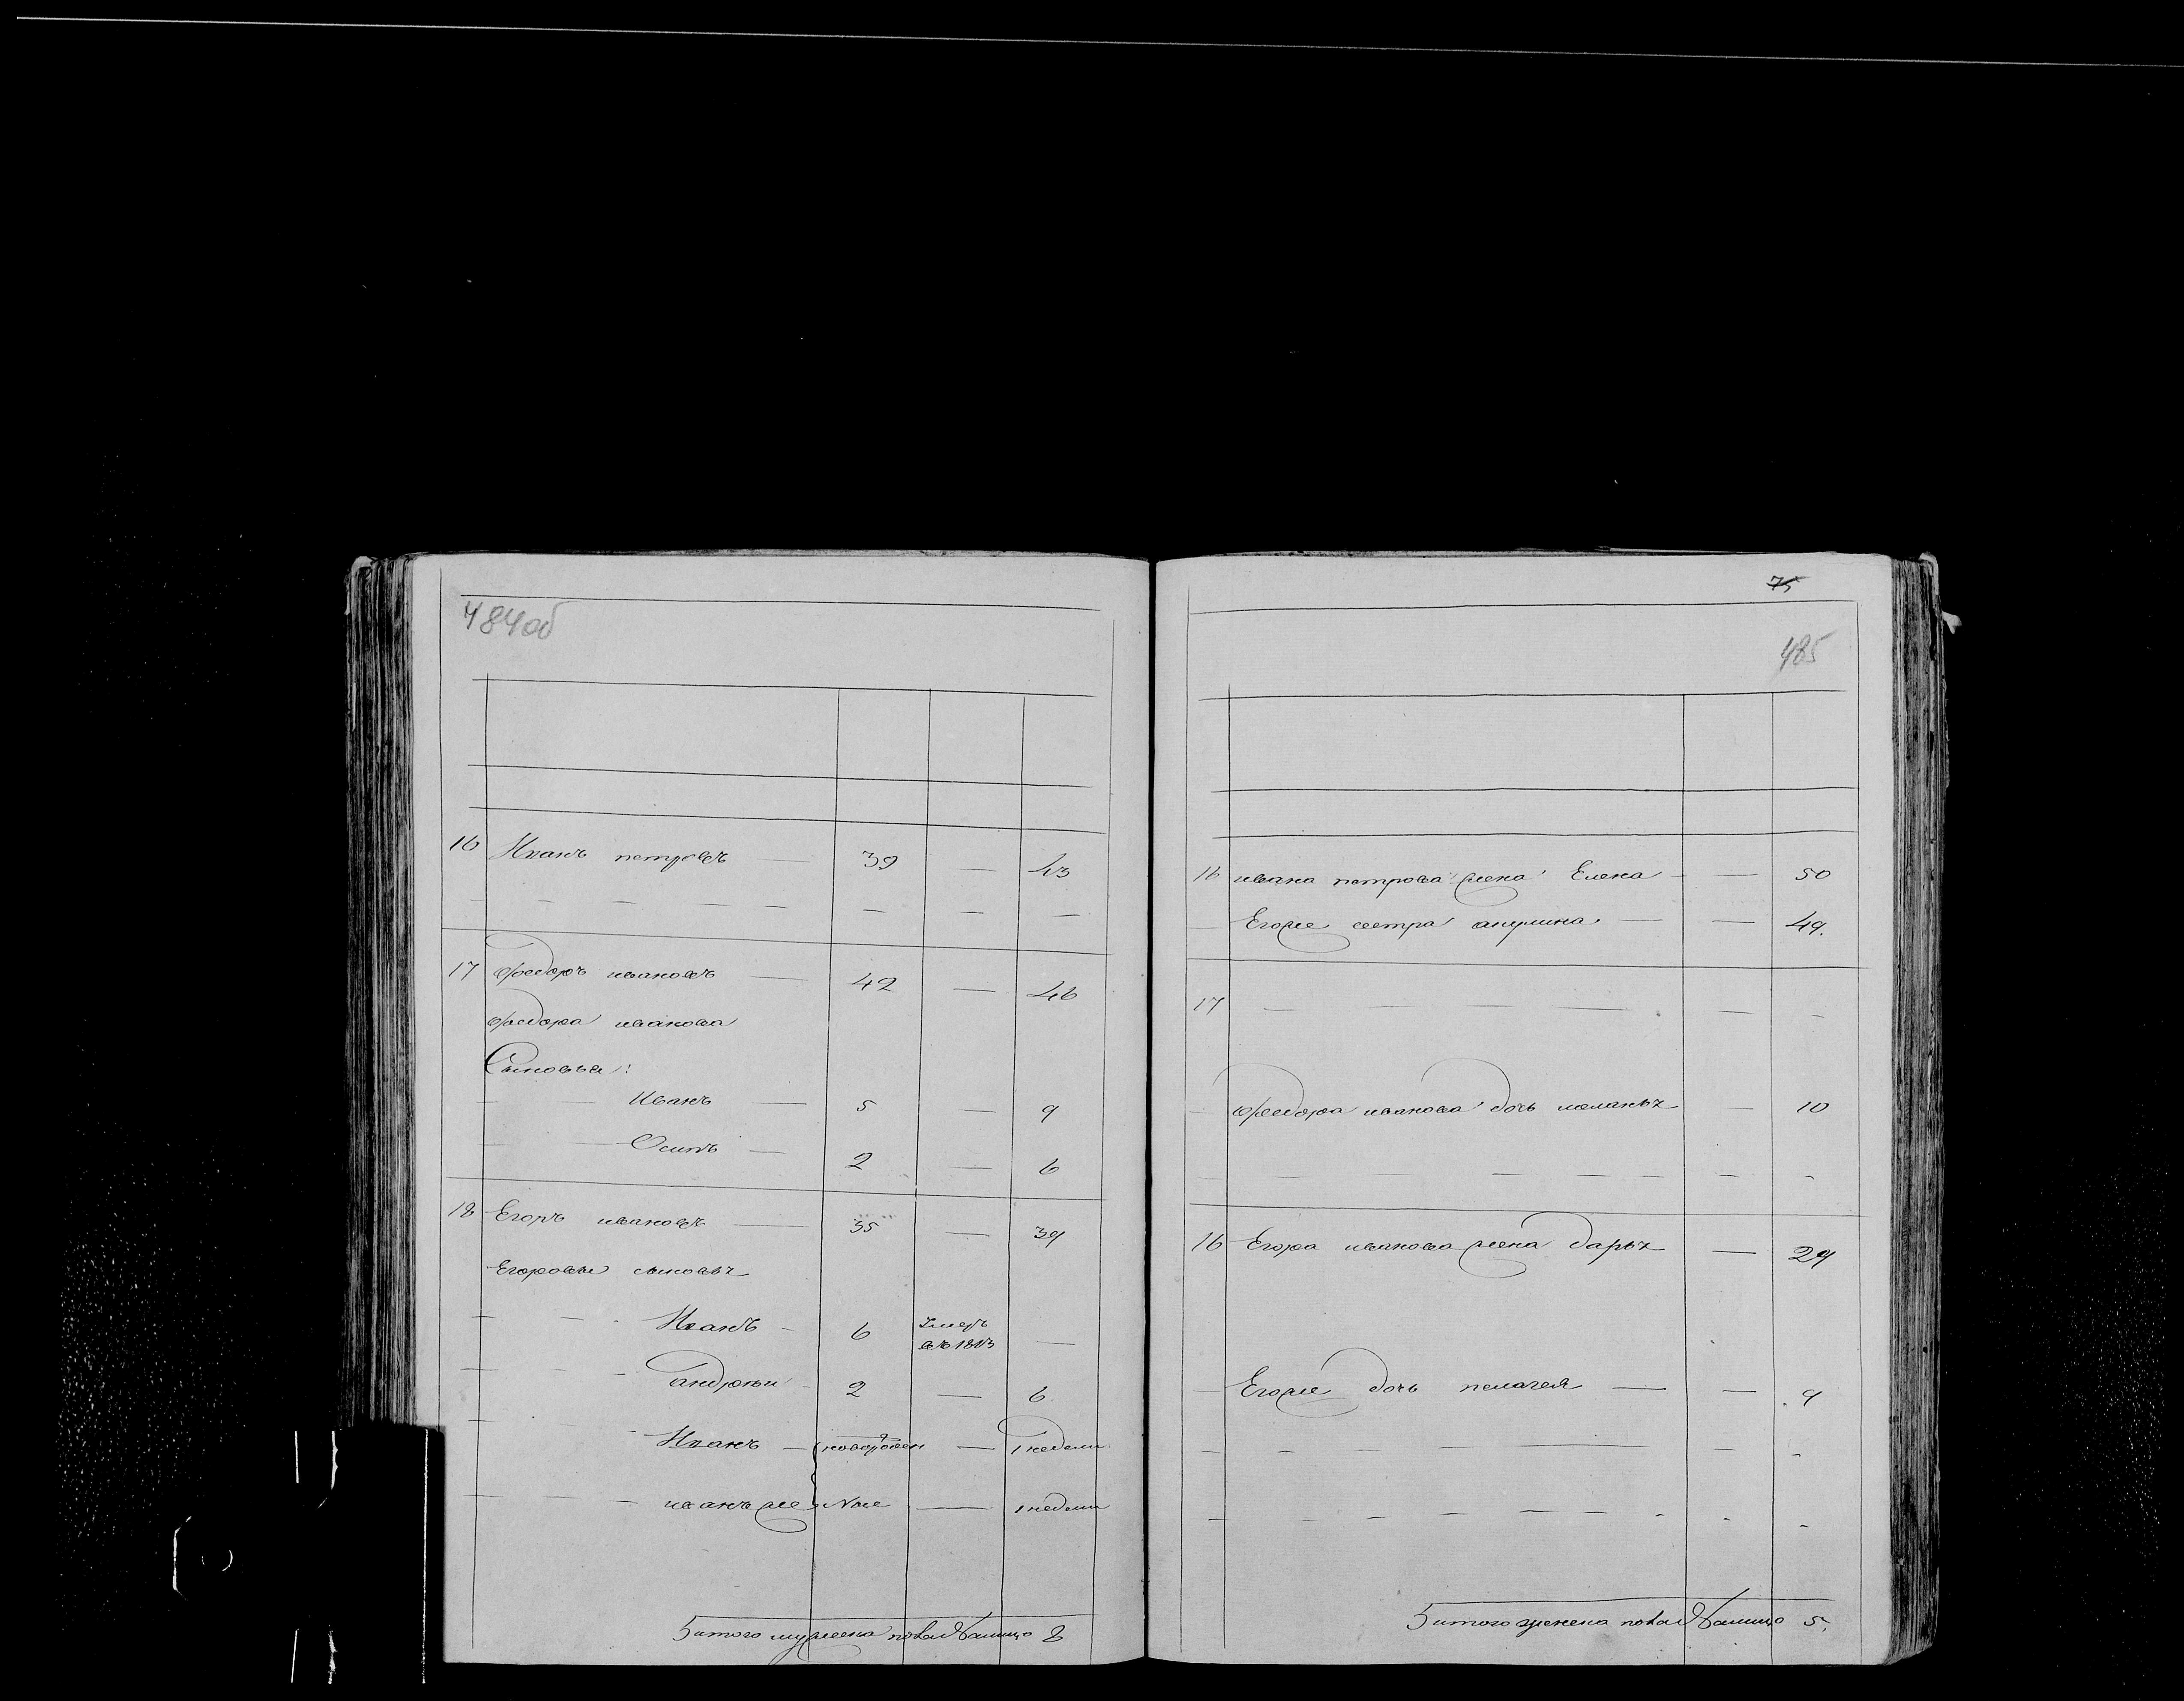 484об
16 Иванъ петровъ — 39 — 43
17 Федоръ ивановъ — 42 — 46
Федора иванова
Сыновья:
Иванъ — 5 — 9
Осипъ — 2 — 6
18 Егоръ ивановъ — 35 — 39
Егоровы сыновья
Иванъ - 6 умеръ —
въ 1813
андреи 2 — 6
Иванъ — новорожден — 1 недели
иванъ же — 1 недели
итого мужеска пола налицо 8
75
485
16 ивана петрова жена Елена — 50
Егоже сестра акулина — 49.
17
Федора иванова дочь маланья — 10
16 Егора иванова жена дарья — 29
Егоже дочь пелагея — — 9
итого женска пола налицо 5.